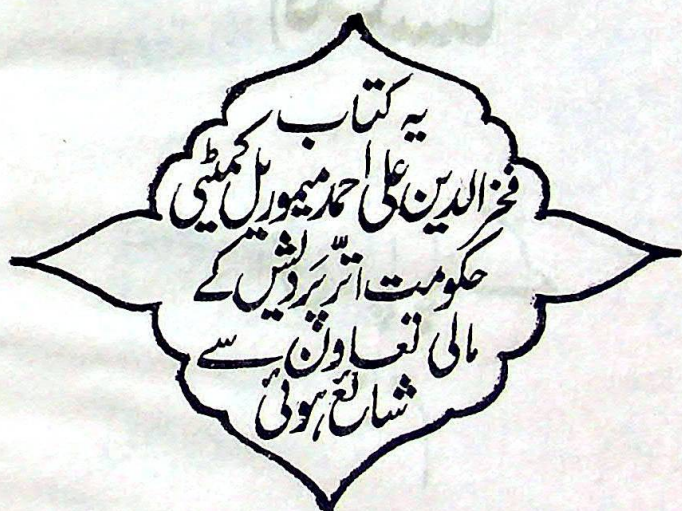 یہ کتاب
فخر الدین علی احمد میموریل کمیٹی
حکومت اتّر پردیش کے
مالی تعاون سے
شائع ہوئی